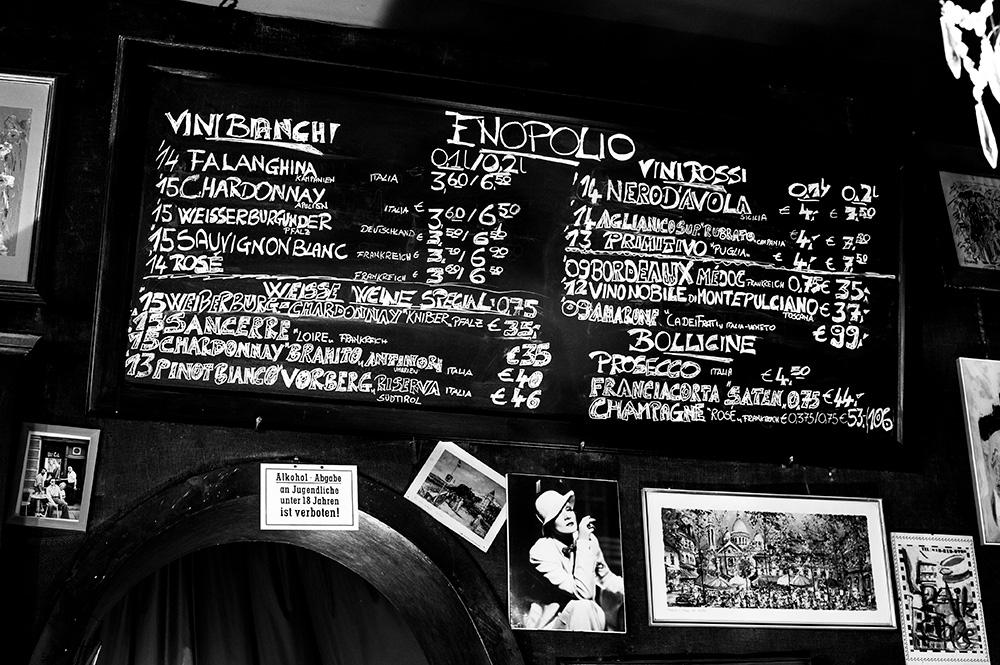 ENOPOLIO
VINI BIANCHI
0,1L/0,2L
'14 FALANGHINA KAMPANIEN ITALIA 3,60/6,50
15 CHARDONNAY APULIEN ITALIA € 3,60/6,50
15 WEISSERBURGUNDER PFALZ DEUTSCHLAND €
15 SAUVIGNON BLANC FRANKREICH €
14 ROSÉ FRANKREICH €
WEISSE WEINE SPECIAL: 0,75
CHARDONNAY" KNIBER, PFALZ € 35,-
SANCERRE "LOIRE" FRANKREICH €35
CHARDONNAY BRAMITO, ANTINORI ITALIA € 40
13 PINOT BIANCO "VORBERG, RISERVA SÜDTIROL ITALIA € 46
VINI ROSSI
0,1L 0,2L
'14 NERO D'AVOLA SICILIA € 4,- € 7,50
14 AGLIANICO € 4,- € 7,50
13 PRIMITIVO "PUGLIA" € 4,- € 7,50
'09 BORDEAUX MÉDOC FRANKREICH 0,75 € 35,-
'12 VINO NOBILE DI MONTEPULCIANO TOSCANA € 37,-
'09 AMARONE "CA DEI FRATI" ITALIA-VENETO € 99,-
BOLLICINE
PROSECCO ITALIA € 4,50
FRANCIACORTA "SATEN, 0,75 € 44,-
CHAMPAGNE "ROSÉ" FRANKREICH € 0,375/0,75 € 53,/106
Alkohol - Abgabe
an Jugendliche
unter 18 Jahren
ist verboten!